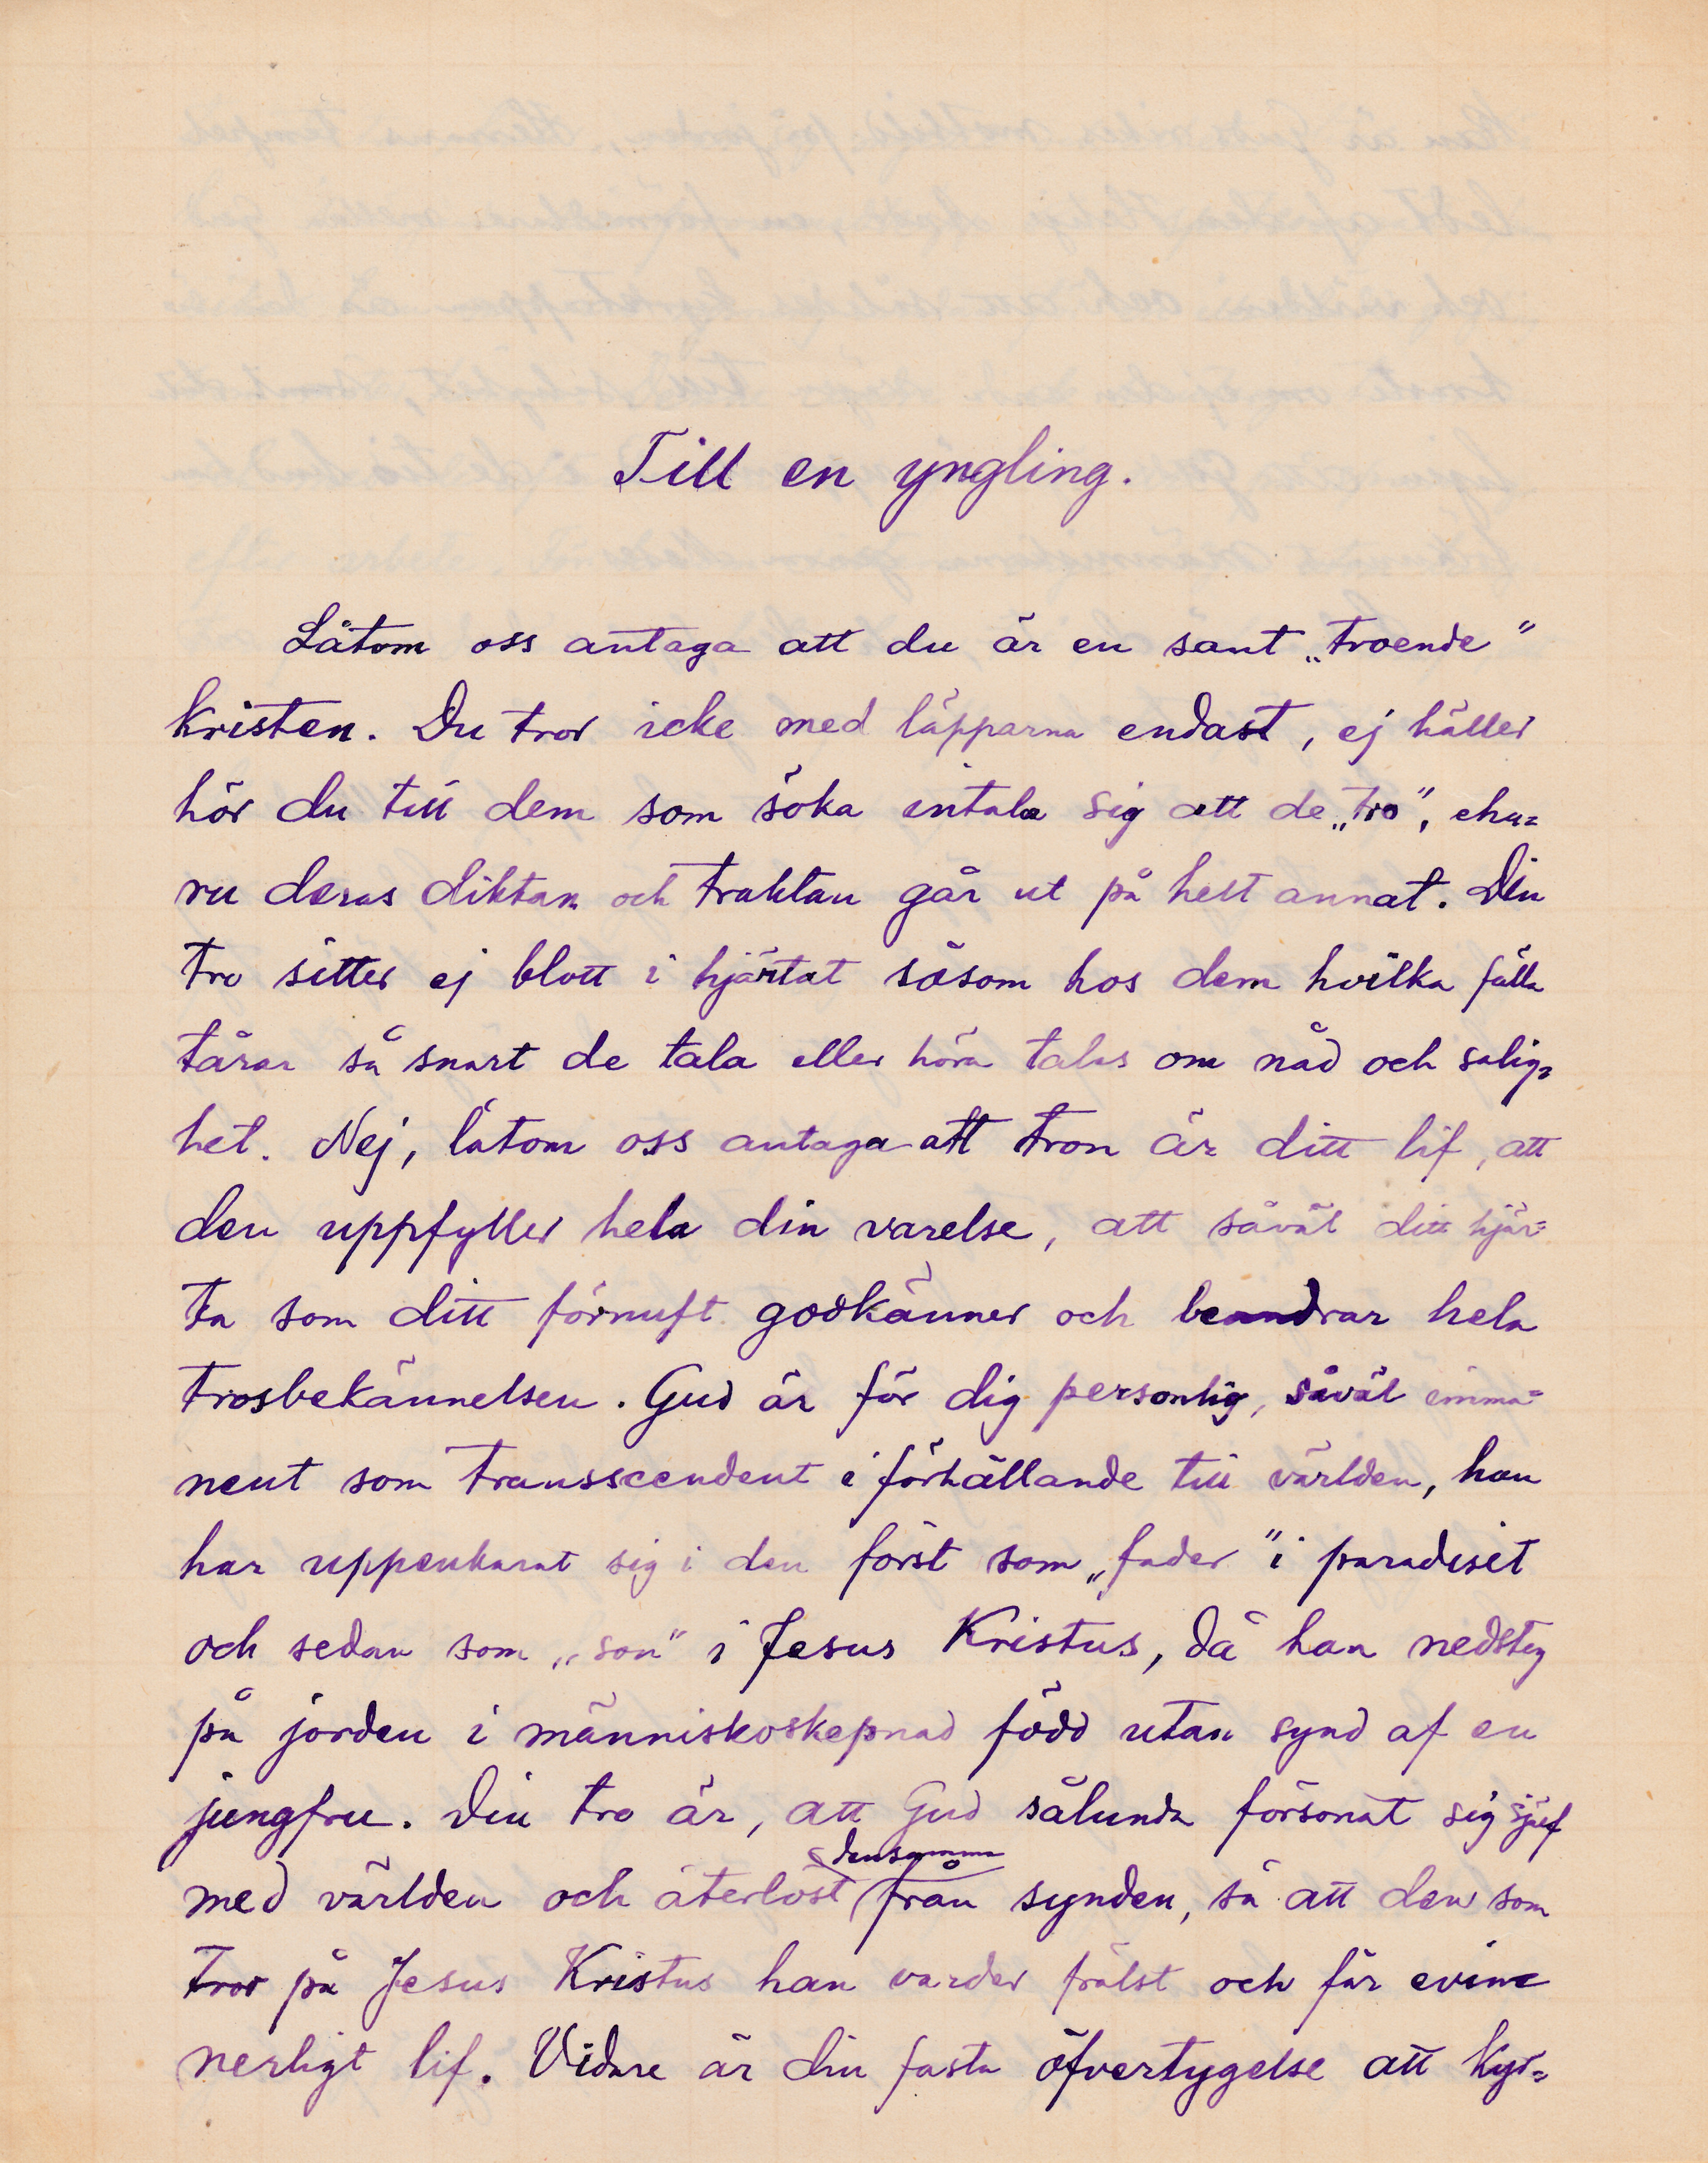 Till en yngling.
Låtom oss antaga att du är en sant „troende"
kristen. Du tror icke med läpparna endast, ej häller
hör du till dem som söka intala sig att de „tro", ehu=
ru deras diktan och traktan går ut på helt annat. Din
tro sitter ej blott i hjärtat såsom hos dem hvilka fälla
tårar så snart de tala eller höra talas om nåd och salig=
het. Nej, låtom oss antaga att tron är ditt lif, att
den uppfyller hela din varelse, att såväl ditt hjär=
ta som ditt förnuft godkänner och beundrar hela
trosbekännelsen. Gud är för dig personlig, såväl imma=
nent som transscendent i förhållande till världen, han
har uppenbarat sig i den först som „fader" i paradiset
och sedan som „son" i Jesus Kristus, då han nedsteg
på jorden i människoskepnad född utan synd af en
jungfru. Din tro är, att Gud sålunda försonat sig sjelf
med världen och återlöst densamma från synden, så att den som
tror på Jesus Kristus han varder frälst och får evin=
nerligt lif. Vidare är din fasta öfvertygelse att kyr=